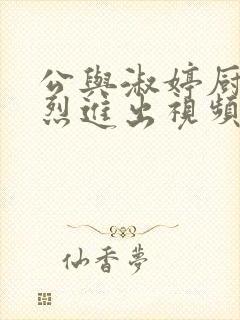 公與淑婷厨
烈進出視頻
仙香夢